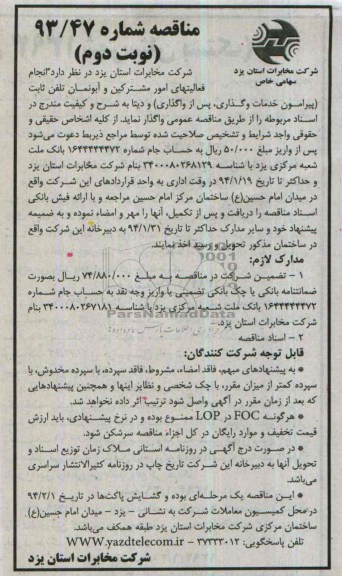 مناقصه شماره ۹۳/۴۷
(نوبت دوم)
شرکت مخابرات استان یزد
سهامی خاص
شرکت مخابرات استان یزد در نظر دارد "انجام
فعالیتهای امور مشترکین و آبونمان تلفن ثابت
(پیرامون خدمات واگذاری، پس از واگذاری) و دیتا به شرح و کیفیت مندرج در
اسناد مربوطه را از طریق مناقصه عمومی واگذار نماید. از کلیه اشخاص حقیقی و
حقوقی واجد شرایط و تشخیص صلاحیت شده توسط مراجع ذیربط دعوت می‌شود
پس از واریز مبلغ ۵۰/۰۰۰ ریال به حساب جام شماره ۱۶۴۴۴۴۴۴۷۲ بانک ملت
شعبه مرکزی یزد با شناسه ۳۴۰۰۰۸۰۲۶۸۱۲۹ بنام شرکت مخابرات استان یزد
و حداکثر تا تاریخ ۹۴/۱/۱۹ در وقت اداری به واحد قراردادهای این شرکت واقع
در میدان امام حسین(ع) ساختمان مرکز امام حسین مراجعه و با ارائه فیش بانکی
اسناد مناقصه را دریافت و پس از تکمیل، آنها را مهر و امضاء نموده و به ضمیمه
پیشنهاد خود و سایر مدارک حداکثر تا تاریخ ۹۴/۱/۳۱ به دبیرخانه این شرکت واقع
در ساختمان مذکور تحویل و رسید اخذ نمایند.
مدارک لازم:
۱ - تضمین شرکت در مناقصه به مبلغ ۷۴/۸۸۰/۰۰۰ ریال بصورت
ضمانتنامه بانکی یا چک بانکی تضمینی یا واریز وجه نقد به حساب جام شماره
۱۶۴۴۴۴۴۴۷۲ بانک ملت شعبه مرکزی یزد با شناسه ۳۴۰۰۰۸۰۲۶۷۱۸۱ بنام
شرکت مخابرات استان یزد.
۲ - اسناد مناقصه
قابل توجه شرکت کنندگان:
● به پیشنهادهای مبهم، فاقد امضاء، مشروط، فاقد سپرده، با سپرده مخدوش، یا
سپرده کمتر از میزان مقرر، با چک شخصی و نظایر اینها و همچنین پیشنهادهایی
که بعد از زمان مقرر در آگهی واصل شود ترتیب اثر داده نخواهد شد.
● هرگونه FOC در LOP ممنوع بوده و در نرخ پیشنهادی، باید ارزش
قیمت تخفیف و موارد رایگان در کل اجزاء مناقصه سرشکن شود.
● در صورت درج آگهی در روزنامه استانی ملاک زمان توزیع اسناد و
تحویل آنها به دبیرخانه این شرکت تاریخ چاپ در روزنامه کثیرالانتشار سراسری
می‌باشد.
● این مناقصه یک مرحله‌ای بوده و گشایش پاکت‌ها در تاریخ ۹۴/۲/۱
در محل کمیسیون معاملات شرکت به نشانی - یزد - میدان امام حسین(ع).
ساختمان مرکزی شرکت مخابرات استان یزد طبقه همکف می‌باشد.
تلفن پاسخگویی: ۳۷۳۳۳۰۱۲ - WWW.yazdtelecom.ir
شرکت مخابرات استان یزد
ParsNamadData